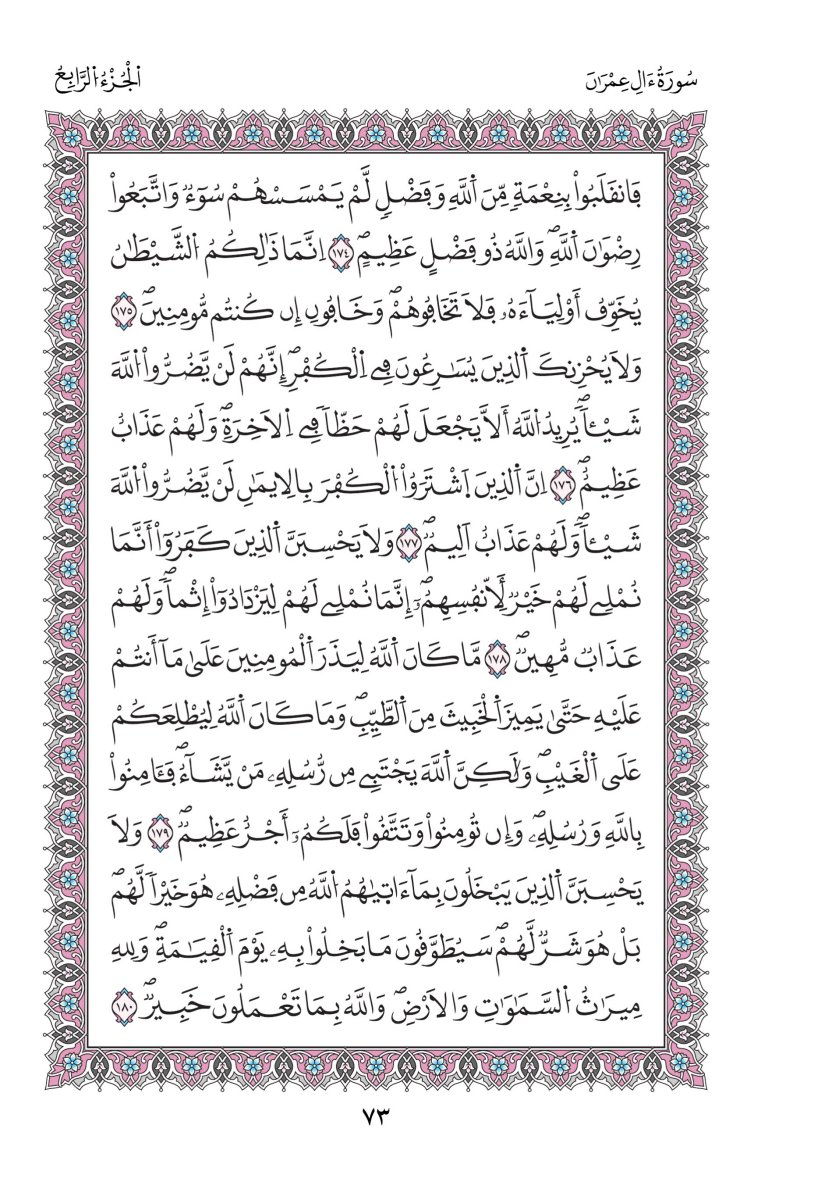 سُورَةُ ءَالِ عِمْرَٰنَ
اَ۬لْجُزْءُ اُ۬لرَّابِعُ
فَانقَلَبُواْ بِنِعْمَةٖ مِّنَ اَ۬للَّهِ وَفَضْلٖ لَّمْ يَمْسَسْهُمْ سُوٓءٞ وَاتَّبَعُواْ
رِضْوَٰنَ اَ۬للَّهِۖ وَاللَّهُ ذُو فَضْلٍ عَظِيمٍۖ ١٧٤ اِنَّمَا ذَٰلِكُمُ اُ۬لشَّيْطَٰنُ
يُخَوِّفُ أَوْلِيَآءَهُۥ فَلَا تَخَافُوهُمْۖ وَخَافُونِ إِن كُنتُم مُّومِنِينَۖ ١٧٥
وَلَا يُحْزِنكَ اَ۬لذِينَ يُسَٰرِعُونَ فِے اِ۬لْكُفْرِۖ إِنَّهُمْ لَنْ يَّضُرُّواْ اُ۬للَّهَ
شَيْـٔاٗۖ يُرِيدُ اُ۬للَّهُ أَلَّا يَجْعَلَ لَهُمْ حَظّاٗ فِے اِ۬لَاخِرَةِۖ وَلَهُمْ عَذَابٌ
عَظِيمٌۖ ١٧٦ اِنَّ اَ۬لذِينَ اَ۪شْتَرَوُاْ اُ۬لْكُفْرَ بِالِايمَٰنِ لَنْ يَّضُرُّواْ اُ۬للَّهَ
شَيْـٔاٗۖ وَلَهُمْ عَذَابٌ اَلِيمٞۖ ١٧٧ وَلَا يَحْسِبَنَّ اَ۬لذِينَ كَفَرُوٓاْ أَنَّمَا
نُمْلِے لَهُمْ خَيْرٞ لِّأَنفُسِهِمُۥٓۖ إِنَّمَا نُمْلِے لَهُمْ لِيَزْدَادُوٓاْ إِثْماٗۖ وَلَهُمْ
عَذَابٞ مُّهِينٞۖ ١٧٨ مَّا كَانَ اَ۬للَّهُ لِيَذَرَ اَ۬لْمُومِنِينَ عَلَىٰ مَآ أَنتُمْ
عَلَيْهِ حَتَّىٰ يَمِيزَ اَ۬لْخَبِيثَ مِنَ اَ۬لطَّيِّبِۖ وَمَا كَانَ اَ۬للَّهُ لِيُطْلِعَكُمْ
عَلَى اَ۬لْغَيْبِۖ وَلَٰكِنَّ اَ۬للَّهَ يَجْتَبِے مِن رُّسُلِهِۦ مَنْ يَّشَآءُۖ فَـَٔامِنُواْ
بِاللَّهِ وَرُسُلِهِۦۖ وَإِن تُومِنُواْ وَتَتَّقُواْ فَلَكُمُۥٓ أَجْرٌ عَظِيمٞۖ ١٧٩ وَلَا
يَحْسِبَنَّ اَ۬لذِينَ يَبْخَلُونَ بِمَآ ءَات۪يٰهُمُ اُ۬للَّهُ مِن فَضْلِهِۦ هُوَ خَيْراٗ لَّهُمۖ
بَلْ هُوَ شَرّٞ لَّهُمْۖ سَيُطَوَّقُونَ مَا بَخِلُواْ بِهِۦ يَوْمَ اَ۬لْقِيَٰمَةِۖ وَلِلهِ
مِيرَٰثُ اُ۬لسَّمَٰوَٰتِ وَالَارْضِۖ وَاللَّهُ بِمَا تَعْمَلُونَ خَبِيرٞۖ ١٨٠
٧٣